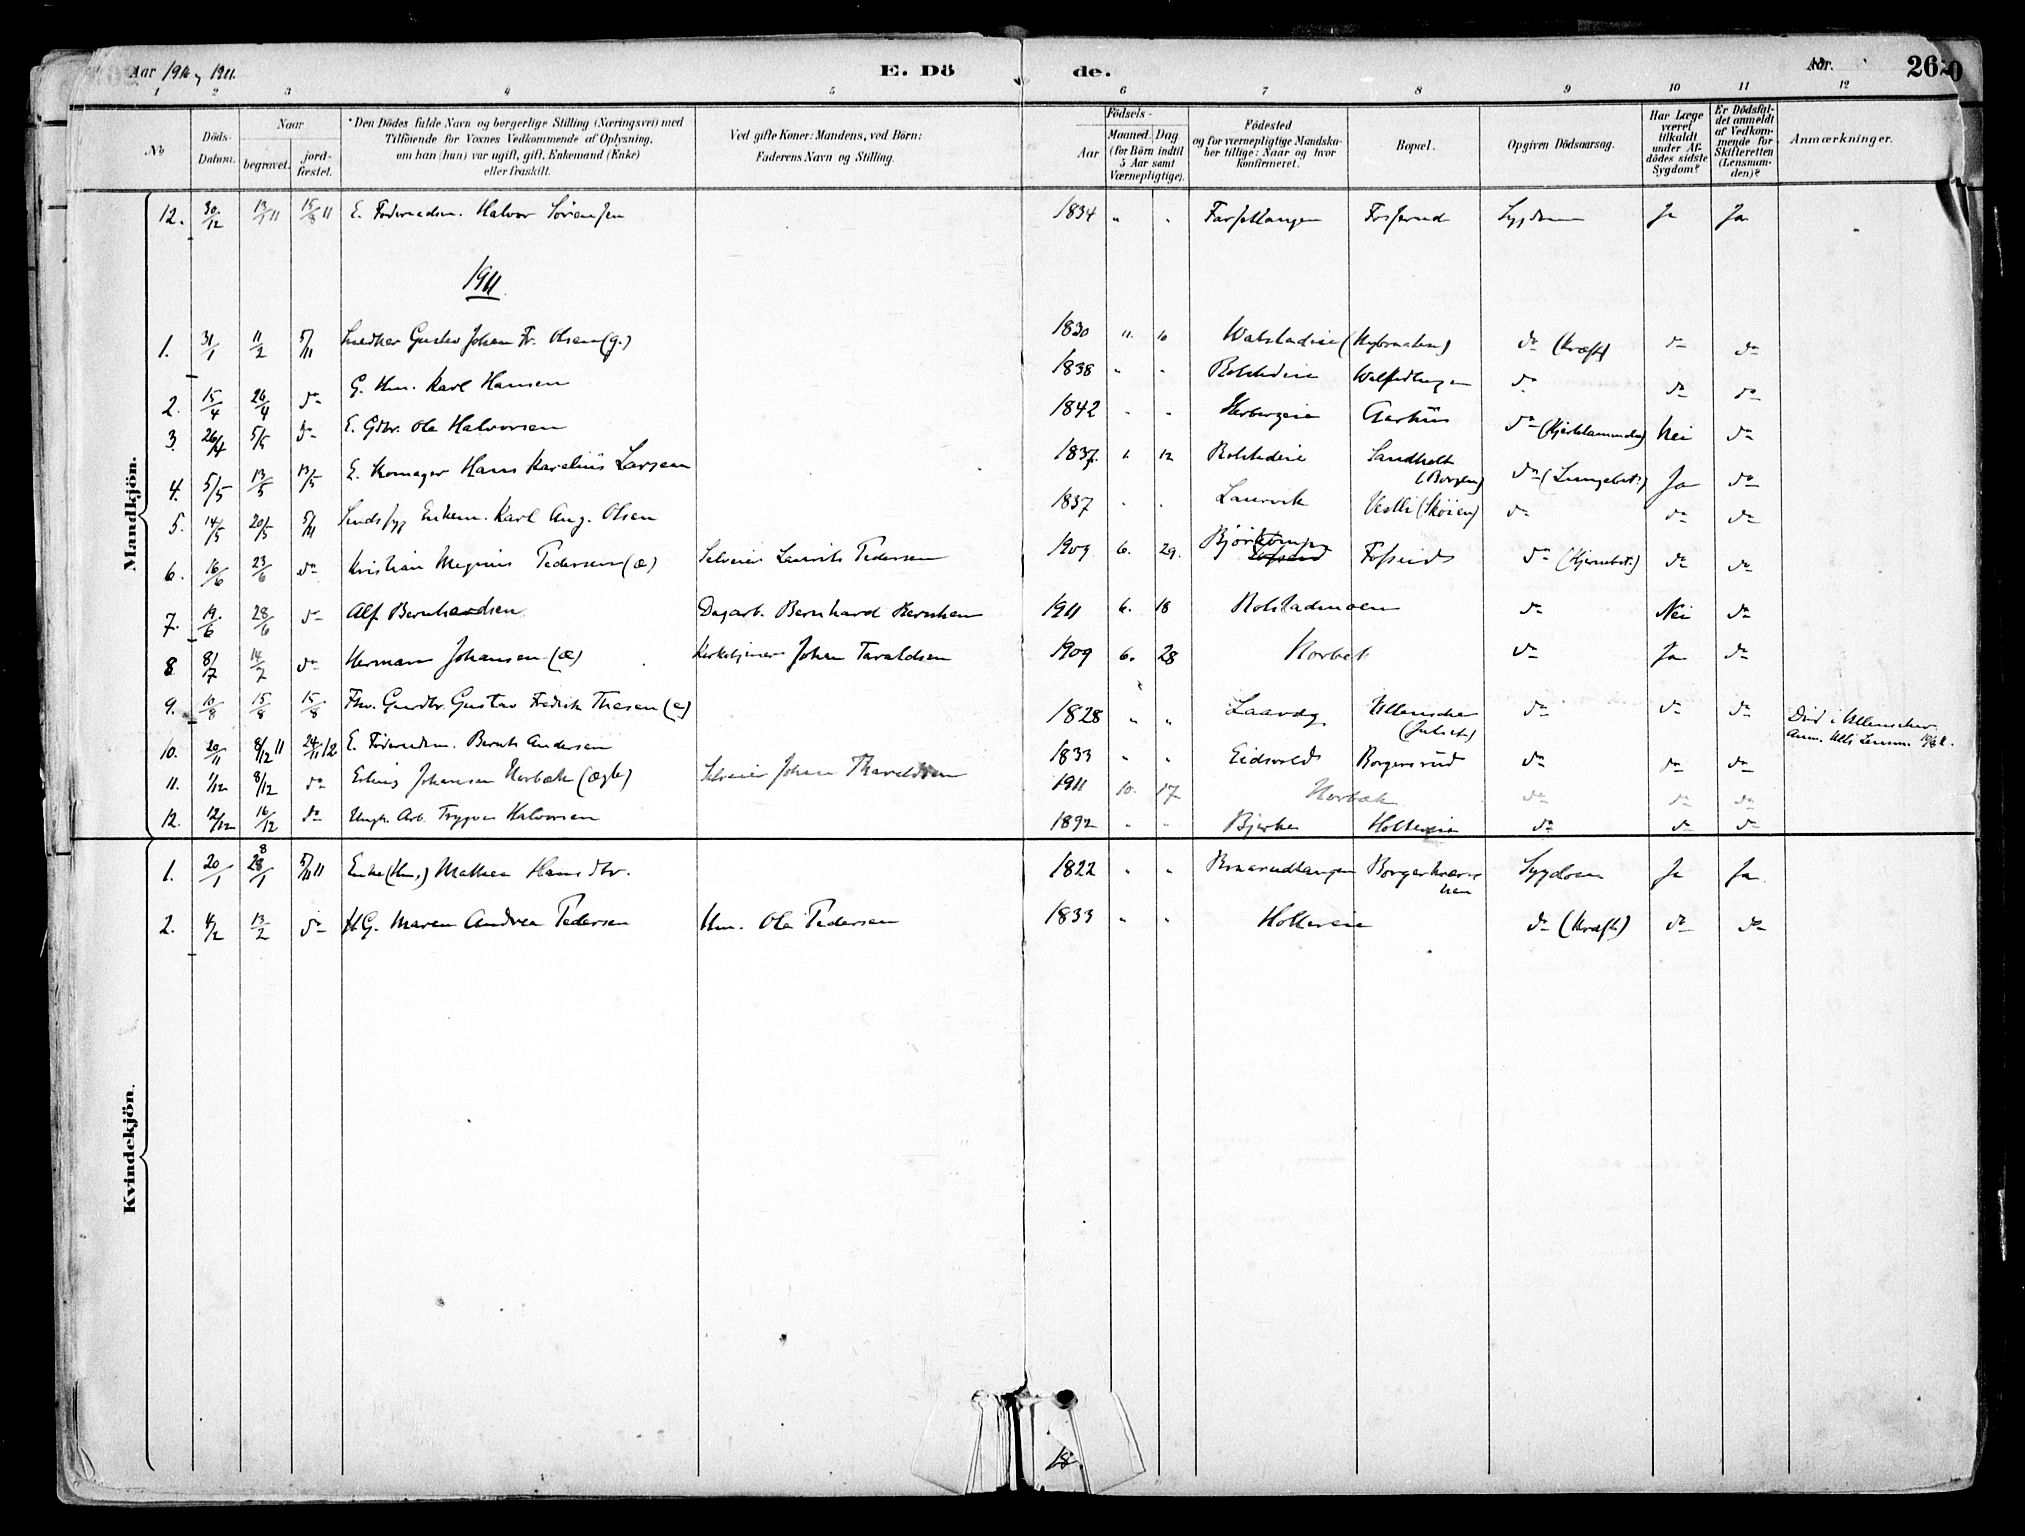 Aar 1910, 1911. E. Dö de. Aar. 260
1 2 3 4 5 6 7 8 9 10 11 12
No Döds-Datum. Naar begravet. jord-fæstet.
*Den Dödes fulde Navn og borgerlige Stilling (Næringsvei) med
Tilföiende for Voxnes Vedkommende af Oplysning,
om han (hun) var ugift, gift, Enkemand (Enke)
eller fraskilt.
Ved gifte Koner: Mandens, ved Börn:
Faderens Navn og Stilling.
Födsels-
Aar Maaned. Dag
(for Börn indtil
5 Aar samt
Værnepligtige).
Födested
og for værnepligtige Mandska-
ber tillige: Naar og hvor
konfirmeret.
Bopæl.
Opgiven Dödsaarsag.
Har Læge
været
tilkaldt
under Af-
dödes sidste
Sygdom?
Er Dödsfal-
det anmeldt
af Vedkom-
mende for
Skifteretten
(Lensman-
den)?
Anmærkninger.
Mandkjön.
12. 30/12 13/1 11 15/3 11 E. Föderaadsm. Halvor Sörensen 1834 " " Fosserud Sygdom Ja Ja
1911
1. 31/1 11/2 5/11 Snedker Gustav Johan Fr. Olsen (g.) 1830 11. 10 do (Kræft) do do
2. 15/4 26/4 do G. Hm. Karl Hansen 1838 " " Rolstadeie do do do
3. 26/4 5/5 do E. Gdbr. Ole Halvorsen 1842 " " Aarhus do Nei do
4. 5/5 13/5 13/5 E. Hans Karelius Larsen 1837. 1 12 Rolstadeie Sandholt (Borgen) do (Lungebet.) Ja do
5. 14/5 20/5 5/11 Enkem. Karl Aug. Olsen 1837 " " Laurvik Vestli (Sköien) do do do
6. 16/6 23/6 do Kristian Magnus Pedersen (æ) Selveier Laurits Pedersen 1909 6. 29. Fosserud do (Hjernebet.) do do
7. 19/6 28/6 do Alf Bernhardsen Dagarb. Bernhard 1911 6. 18 Rolstadmoen do Nei do
8 8/7 14/7 do Herman Johansen (æ) Kirketjener Johan Taraldsen 1909 6. 28 Horbek do Ja do
9. 10/8 15/8 15/8 Fhv. Gaardbr. Gustav Fredrik Thesen (e) 1828 " " Ullensaker do do do Död i Ullensaker
10. 20/11 8/12 11 24/11 12 E. Föderaadsm. Bernt Andersen 1833 " " Eidsvold Borgersrud do do do
11. 1/12 8/12 do Erling Johansen Horbæk (ægte) Selveier Johan Tharaldsen 1911 10. 17 Horbæk do do do
12. 12/12 16/12 do Ungk. Arb. Trygve Halvorsen 1892 " " Bjerke Holtereie do do do
Kvindekjön.
1. 20/1 28/1 5/11 11 Enke (Hm.) Mathea Hansdtr. 1822 " " Sygdom Ja Ja
2. 4/2 13/2 do HG. Maren Andrea Pedersen Hm. Ole Pedersen 1833 " " Holtereie do (Kræft) do do
18.